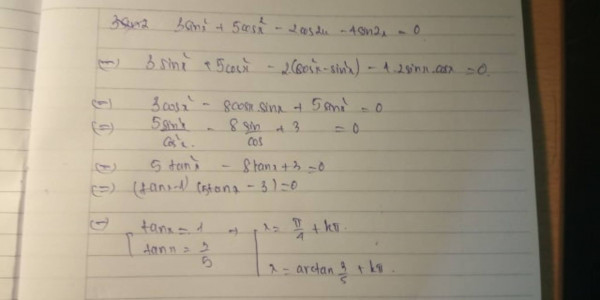 3sin²x + 5cos²x - 2cos2x - 4sin2x = 0
(=) 3sin²x + 5cos²x - 2(cos²x - sin²x) - 4.2sinx.cosx = 0
(=) 3cos²x - 8cosx sinx + 5sin²x = 0
(=) 5sin²x/cos²x - 8sin/cos + 3 = 0
(=) 5tan²x - 8tanx + 3 = 0
(=) (tanx-1)(5tanx - 3) = 0
(=) [ tanx = 1 → [ x = π/4 + kπ.
tanx = 3/5 x = arctan 3/5 + kπ.